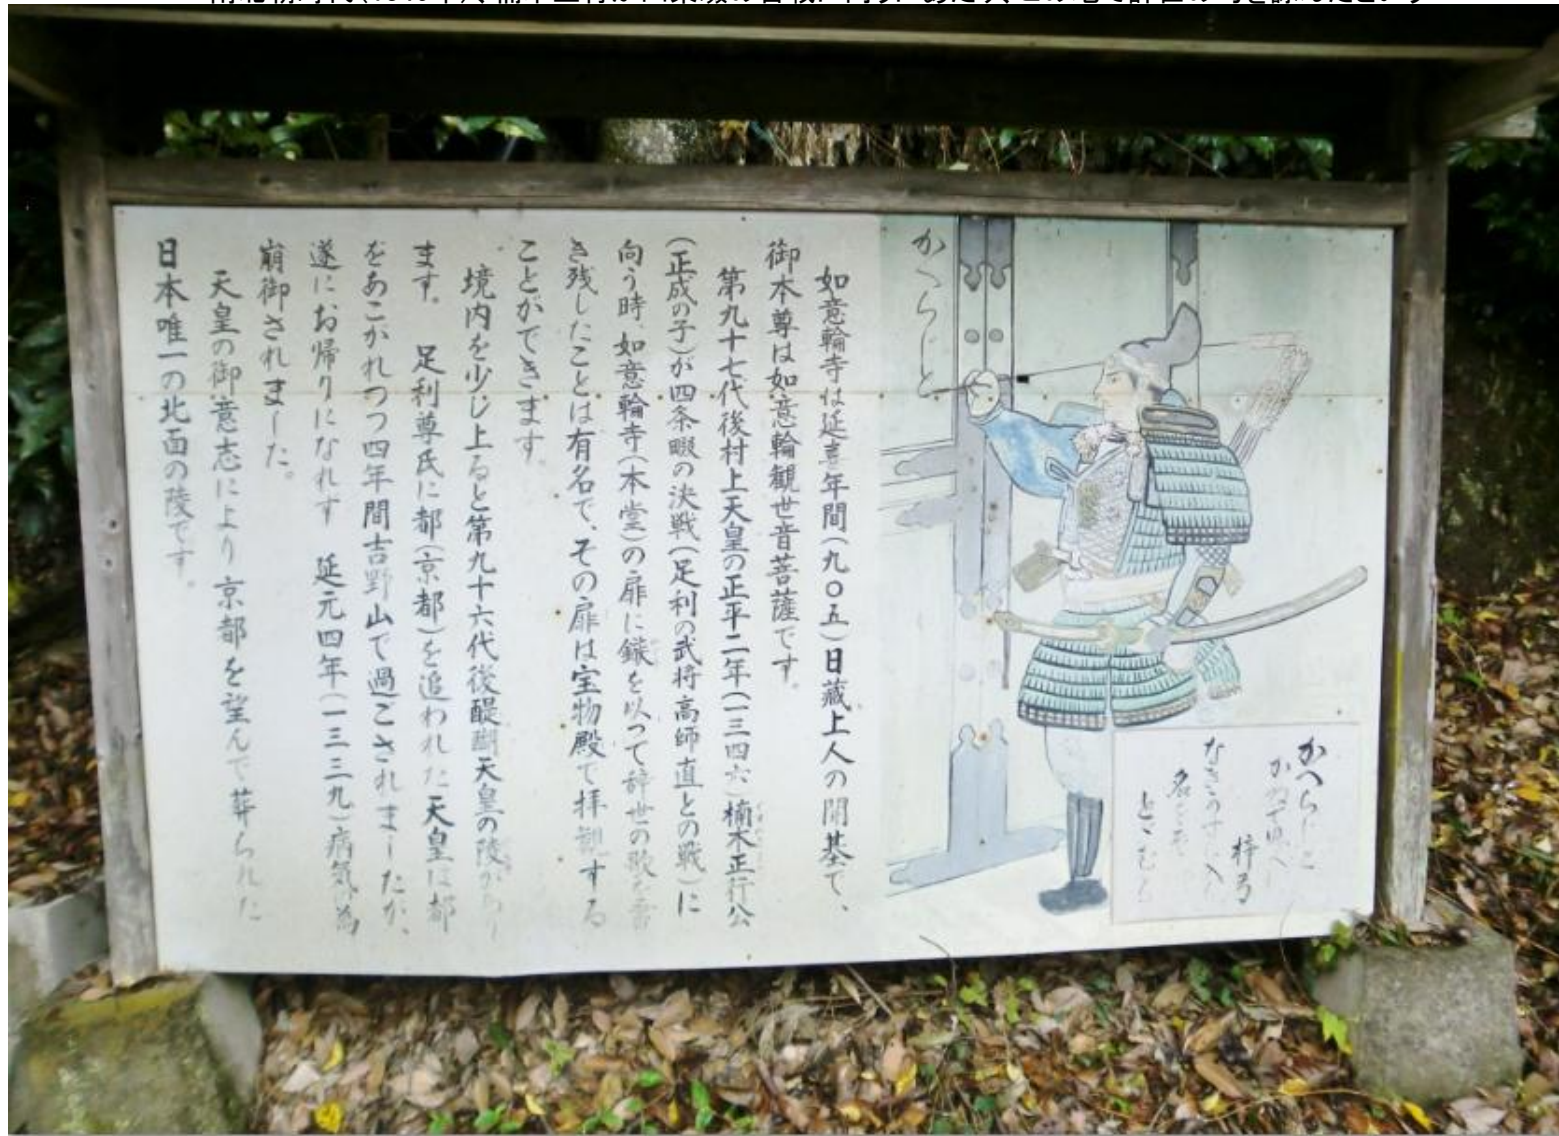 かへらじと
梓弓
名をぞ
かへらじと
如意輪寺は延喜年間(九〇五)日蔵上人の開基で、
御本尊は如意輪観世音菩薩です。
第九十七代後村上天皇の正平二年(一三四六)楠木正行公
(正成の子)が四条畷の決戦(足利の武将高師直との戦)に
向う時、如意輪寺(本堂)の扉に鏃を以って辞世の歌を書
き残したことは有名で、その扉は宝物殿で拝観する
ことができます。
境内を少し上ると第九十六代後醍醐天皇の陵があり
ます。 足利尊氏に都(京都)を追われた天皇は都
をあこがれつつ四年間吉野山で過ごされましたが、
遂にお帰りになれず 延元四年(一三三九)病気の為
崩御されました。
天皇の御意志により京都を望んで葬られた
日本唯一の北面の陵です。